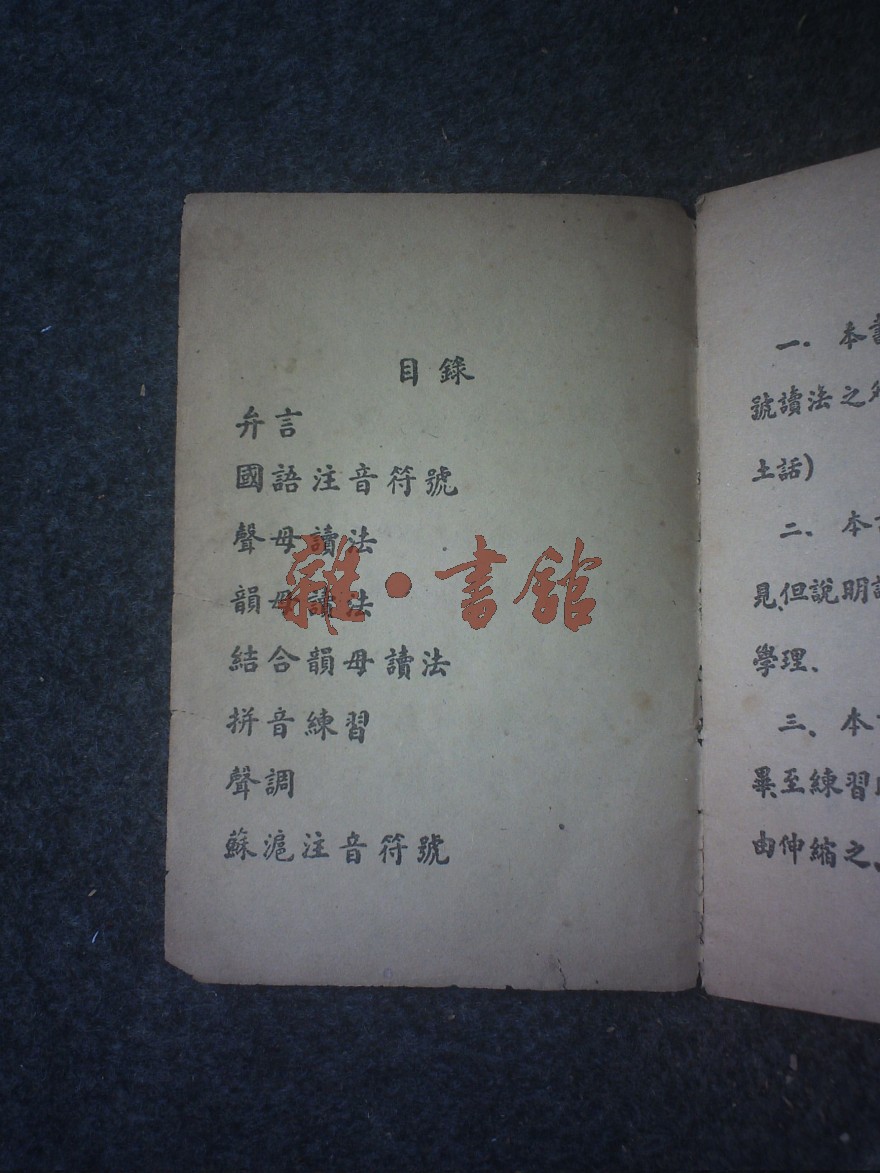 目錄
弁言
國語注音符號
聲母讀法
韻母讀法
結合韻母讀法
拼音練習
聲調
蘇滬注音符號
雜·書館
一.本書
號讀法之外
土話)
二、本書
見,但說明讀
學理、
三、本書
畢,至練習
由伸縮之、